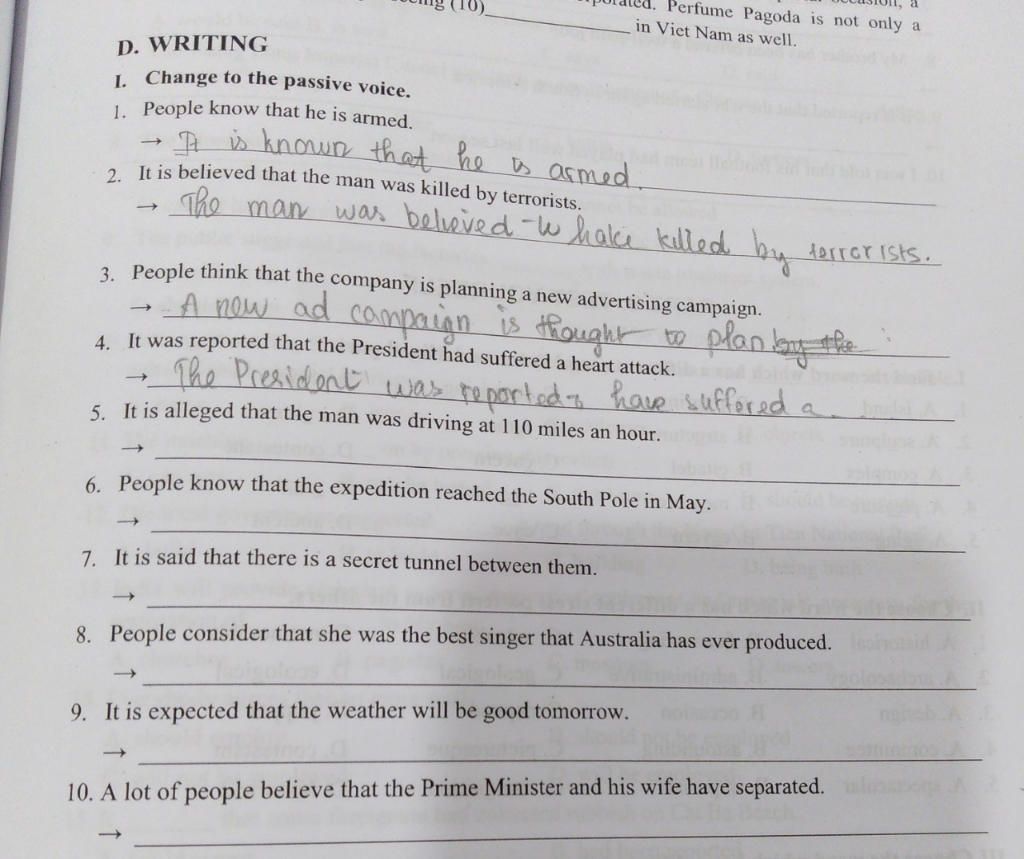 (10)
Perfume Pagoda is not only a
in Viet Nam as well.
D. WRITING
I. Change to the passive voice.
1. People know that he is armed.
→ It is known that he is armed.
2. It is believed that the man was killed by terrorists.
→ The man was believed to hake killed by terrorists.
3. People think that the company is planning a new advertising campaign.
→ A new ad campaign is thought to plan by the
4. It was reported that the President had suffered a heart attack.
→ The President was reported to have suffered a
5. It is alleged that the man was driving at 110 miles an hour.
→
6. People know that the expedition reached the South Pole in May.
→
7. It is said that there is a secret tunnel between them.
→
8. People consider that she was the best singer that Australia has ever produced.
→
9. It is expected that the weather will be good tomorrow.
→
10. A lot of people believe that the Prime Minister and his wife have separated.
→